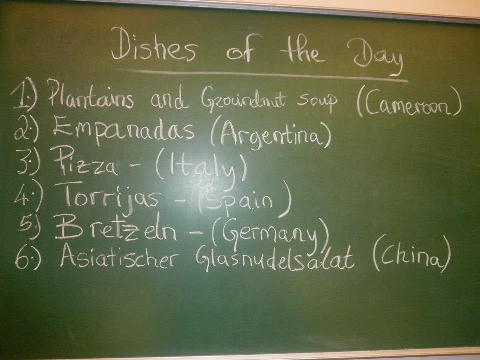 Dishes of the Day
1.) Plantains and Groundnut soup (Cameroon)
2.) Empanadas (Argentina)
3.) Pizza - (Italy)
4.) Torrijas - (Spain)
5.) Bretzeln - (Germany)
6.) Asiatischer Glasnudelsalat (China)